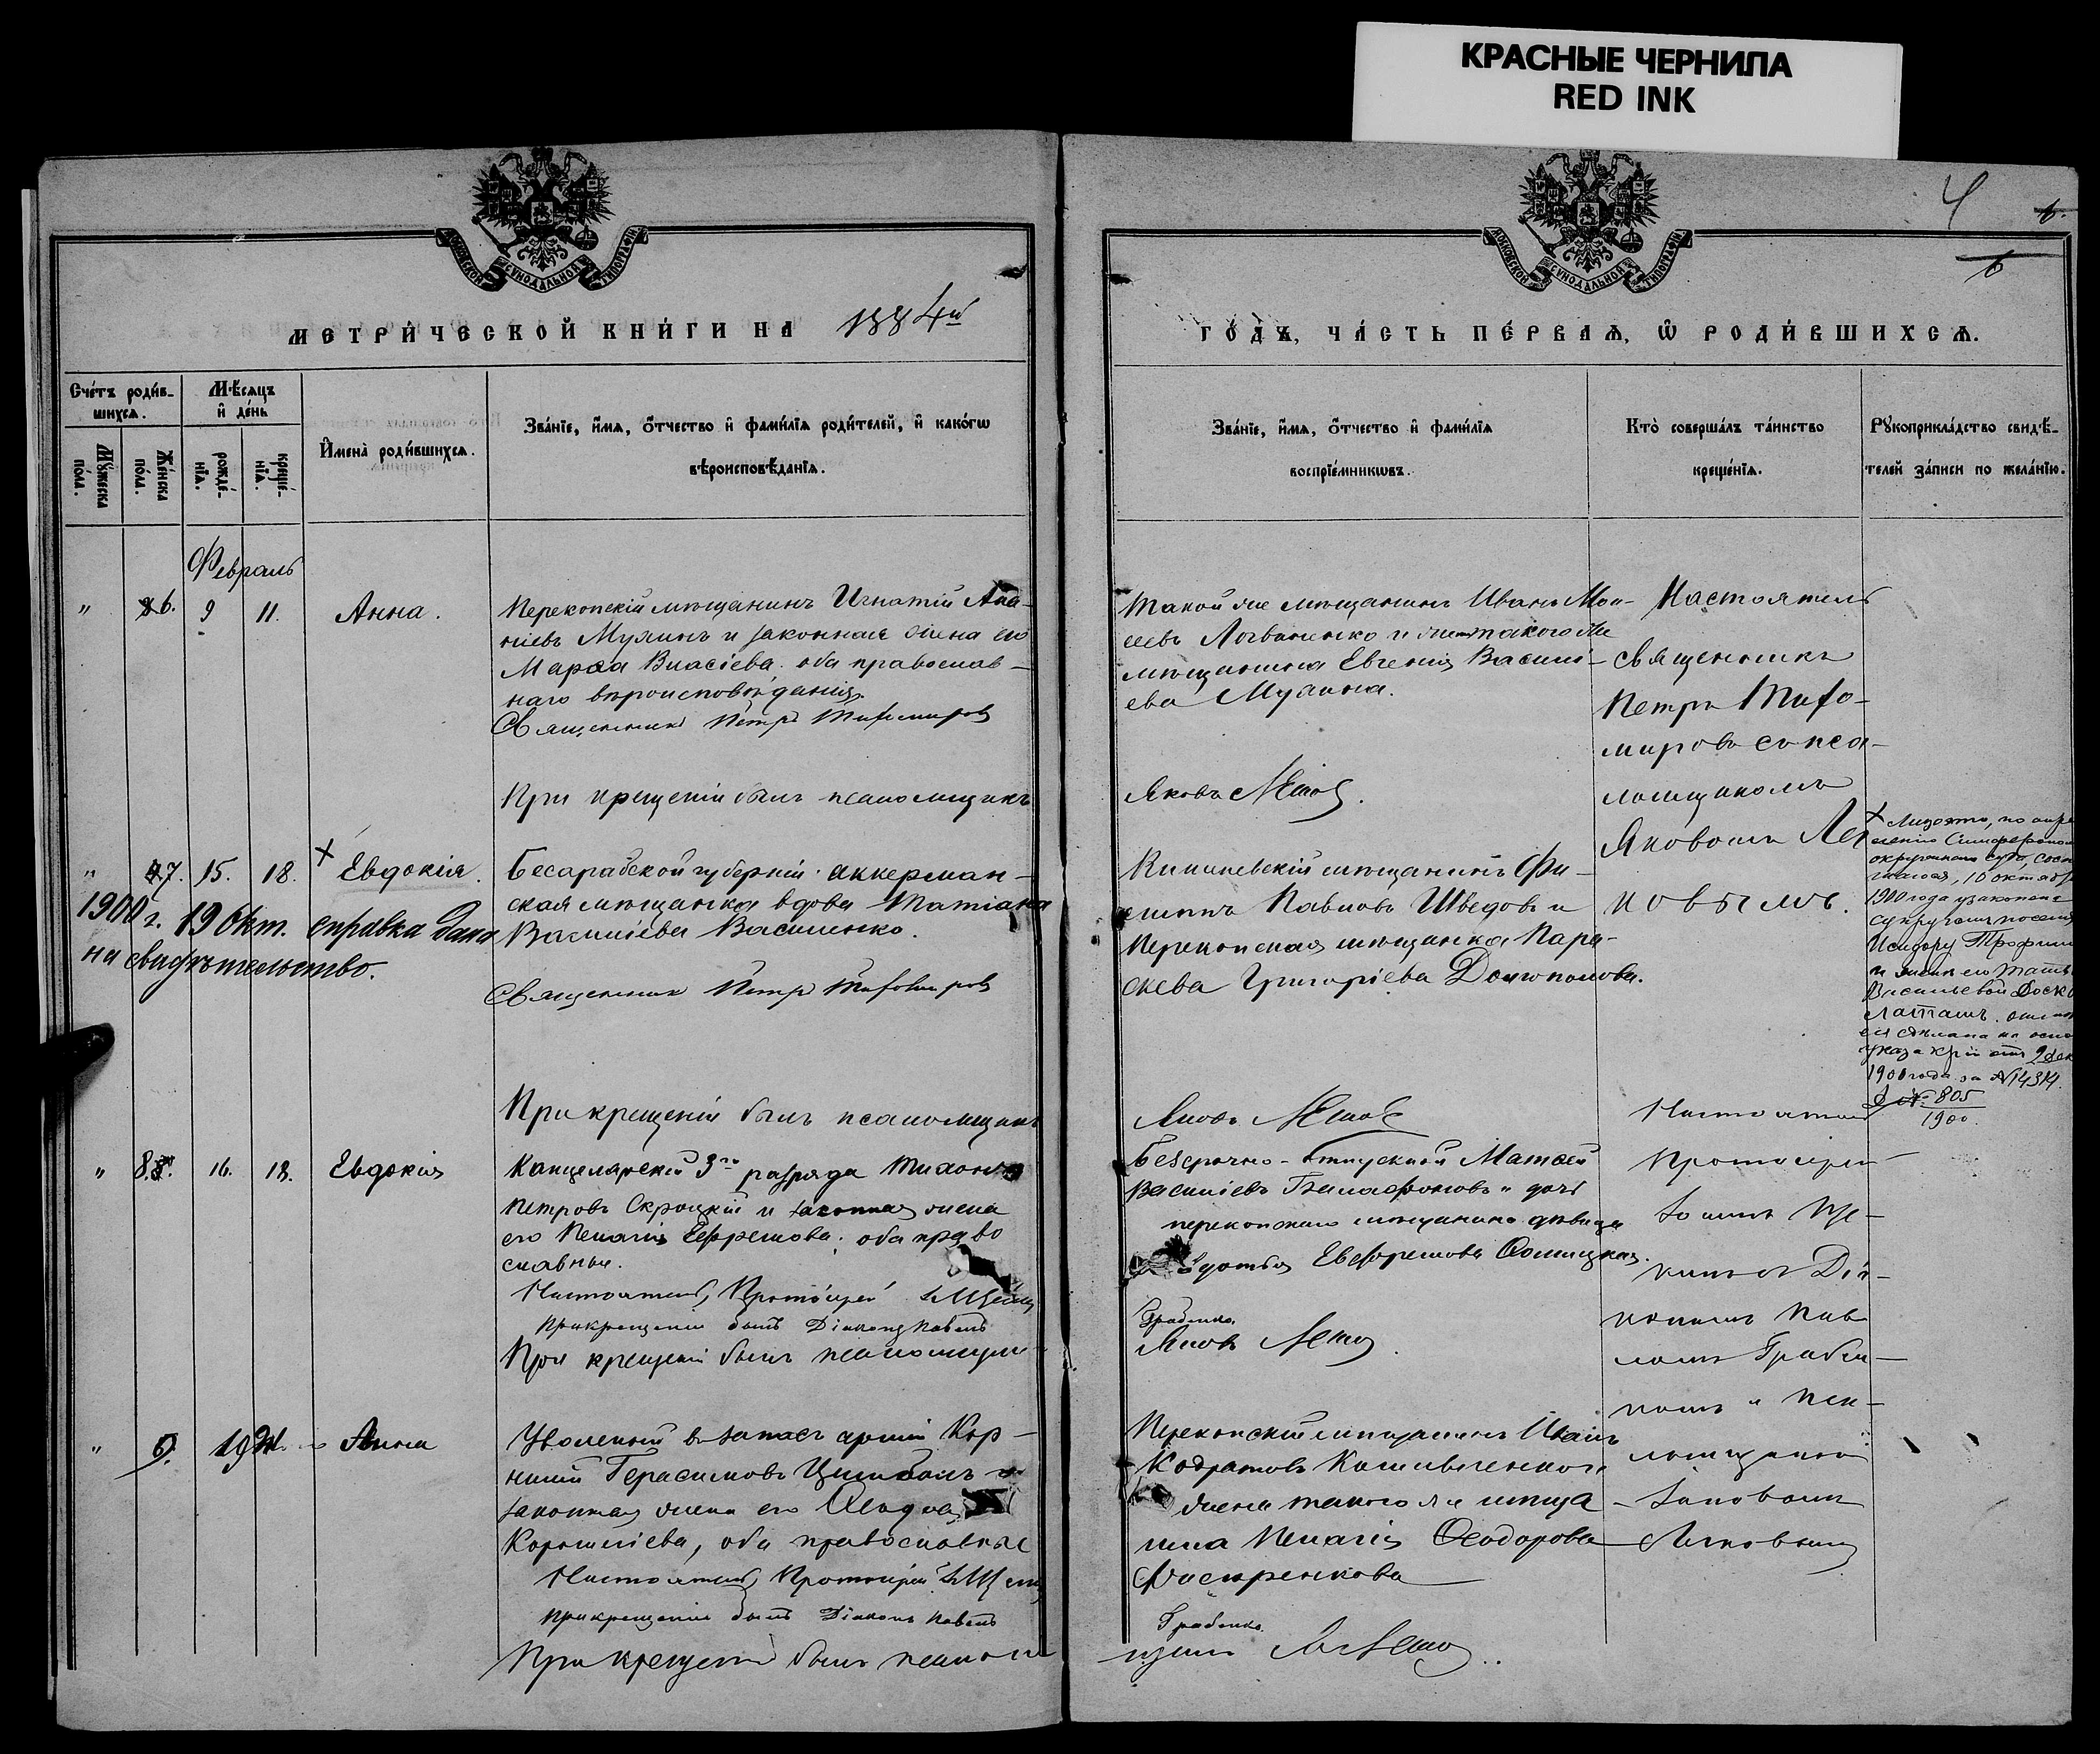 КРАСНЫЕ ЧЕРНИЛА
RED INK
4
6.
6
МОСКОВСКОЙ СѴНОДАЛЬНОЙ ТИПОГРАФІИ
МОСКОВСКОЙ СѴНОДАЛЬНОЙ ТИПОГРАФІИ
МЕТРИ́ЧЕСКОЙ КНИ́ГИ НА 1884й
ГО́ДЪ, ЧА́СТЬ ПЕ́РВАѦ, Ѿ РОДИ́ВШИХСѦ.
Сче́тъ роди́в-
шихсѧ.
Мѣ́сѧцъ
и҆ де́нь
Мꙋ́жеска
по́ла.
Же́нска
по́ла.
рожде́-
нїѧ.
креще́-
нїѧ.
И҆мена̀ роди́вшихсѧ.
Зва́нїе, и҆́мѧ, ѻ҆́тчество и҆ фами́лїѧ роди́телей, и҆ како́гѡ
вѣроисповѣ́данїѧ.
Зва́нїе, и҆́мѧ, ѻ҆́тчество и҆ фами́лїѧ
воспрїе́мникѡвъ.
Кто̀ соверша́лъ та́инство
креще́нїѧ.
Рꙋкоприкла́дство свидѣ́-
телей за́писи по жела́нїю.
Февраль
" 6. 9 11. Анна.
Перекопскій мѣщанинъ Игнатій Ана-
ніевъ Мулинъ и законная жена его
Марѳа Власіева. оба православ-
наго вѣроисповѣданія.
Священникъ Петръ Тихомировъ
При крещеніи былъ псаломщикъ
Такой же мѣщанинъ Иванъ Мои-
сеевъ Логвиненко и жена такого же
мѣщанина Евгенія Василі-
ева Мулина.
Яковъ
Настоятель
священникъ
Петръ Тихо-
мировъ съ пса-
ломщикомъ
Яковомъ
" 7. 15. 18. × Евдокія.
1900 г. 19 окт. справка дана
на свидѣтельство.
Бесарабской губерніи аккерман-
ская мѣщанка вдова Татіана
Васильева Василенко.
Священникъ Петръ Тихомировъ
При крещеніи былъ псаломщикъ
Кишиневскій мѣщанинъ Фи-
липпъ Павловъ Шведовъ и
Перекопская мѣщанка Пара-
скева Григоріева Долгополова.
Яковъ
новымъ.
× Лицо это, по опре
деленію Симферопол
окружнаго суда, сост
10 октяб
1900 года узаконена
супругами
Исидору Трофим
и женѣ его Тать
Васильевой
сдѣлана на осно
указа отъ 9 дек
1900 года за № 14314.
№ 805
1900.
" 8. 16. 18. Евдокія
Канцелярскій 3го разряда Тихонъ
Петровъ Скроцкій и законная жена
его Пелагія Ефремова. оба право
славные.
Настоятель, Протоіерей
При крещеніи былъ Діаконъ Павелъ
При крещеніи былъ псаломщи
Безсрочно-отпускной Матѳей
Василіевъ и дочь
перекопскаго мѣщанина дѣвица
Евфремова
Грабенко.
Яковъ
Настоятель
Протоіерей
съ Діа-
кономъ Пав
ломъ Грабен-
комъ и пса-
ломщикомъ
Яковомъ
" 9. 19 Анна
Уволенный въ запасъ арміи Кор-
нилій Герасимовъ Цимбалъ и
законная жена его
Корниліева, оба православные
Настоятель, Протоіерей
При крещеніи былъ Діаконъ Павелъ
При крещеніи былъ псалом
Перекопскій мѣщанинъ Иванъ
Кодратовъ и
жена такого же мѣща
нина Пелагія Ѳеодорова
Грабенко.
щикъ